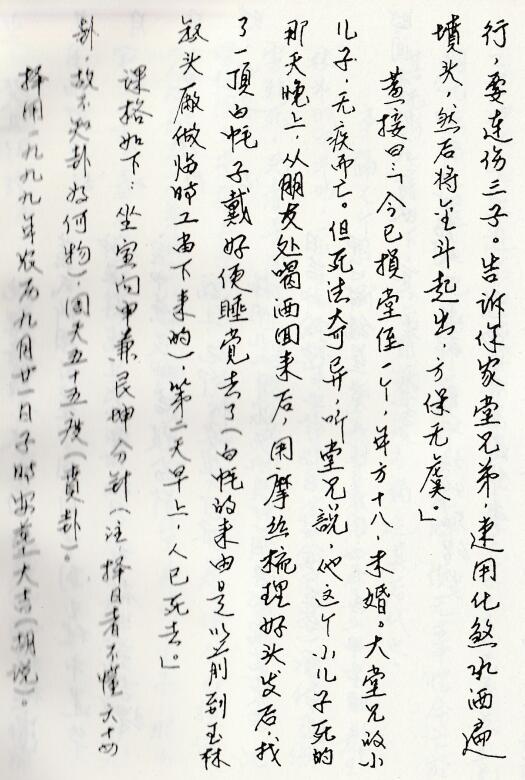 行，要连伤三子。告诉你家堂兄弟，速用化煞水洒遍
墳头，然后将金斗起出，方保无虞。」
黄接曰：「今已损堂侄一个，年方十八，未婚。大堂兄的小
儿子，无疾而亡。但死法奇异，听堂兄說，他这个小儿子死的
那天晚上，从朋友处喝酒回来后，用摩丝梳理好头发后，找
了一頂白帐子戴好便睡觉去了（白帐的来由是以前到玉林
叔头廠做临時工留下来的），第二天早上，人已死去。」
课格如下：坐寅向申兼艮坤分針（注：择日者不懂六十四
卦，故不知卦为何物），周天五十五度（賁卦）。
择用一九九九年农历九月廿一日子時安葬大吉（胡说）。